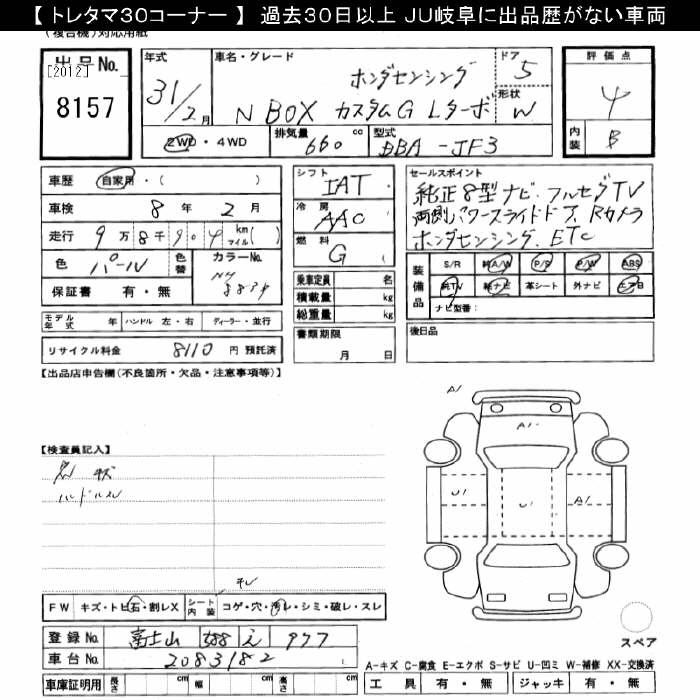 【 トレタマ30コーナー 】 過去30日以上 JU岐阜に出品歴がない車両
(複合機)対応用紙
出品No. [2012] 8157
年式 31/2月
車名・グレード ホンダセンシング N BOX カスタムG Lターボ
ドア 5
形状 W
評価点 4
内装 B
2WD・4WD 排気量 660 cc 型式 DBA-JF3
車歴 自家用・( )
車検 8年 2月
走行 9万8千904 km マイル( )
色 パール 色替 カラーNo. NH 883P
保証書 有・無
モデル年式 年 ハンドル 左・右 ディーラー・並行
リサイクル料金 8110 円 預託済
シフト IAT
冷房 AAC
燃料 G
乗車定員 名
積載量 kg
総重量 kg
書類期限 月 日
セールスポイント
純正8型ナビ.フルセグTV
両側パワースライドドア.Rカメラ
ホンダセンシング.ETC
装備品 S/R 純A/W P/S P/W ABS
純TV 純ナビ 革シート 外ナビ エアB
ナビ型番:
後日品
【出品店申告欄(不良箇所・欠品・注意事項等)】
【検査員記入】
ハンドルスレ
FW キズ・トビ石・割レX シート内装 コゲ・穴・汚レ・シミ・破レ・スレ
登録No. 富士山 588 え 977
車台No. 2083182
車庫証明用 長さ cm 幅 cm 高さ cm
A1
A1
U1
U1
A1
スペア
A-キズ C-腐食 E-エクボ S-サビ U-凹ミ W-補修 XX-交換済
工具 有・無 ジャッキ 有・無